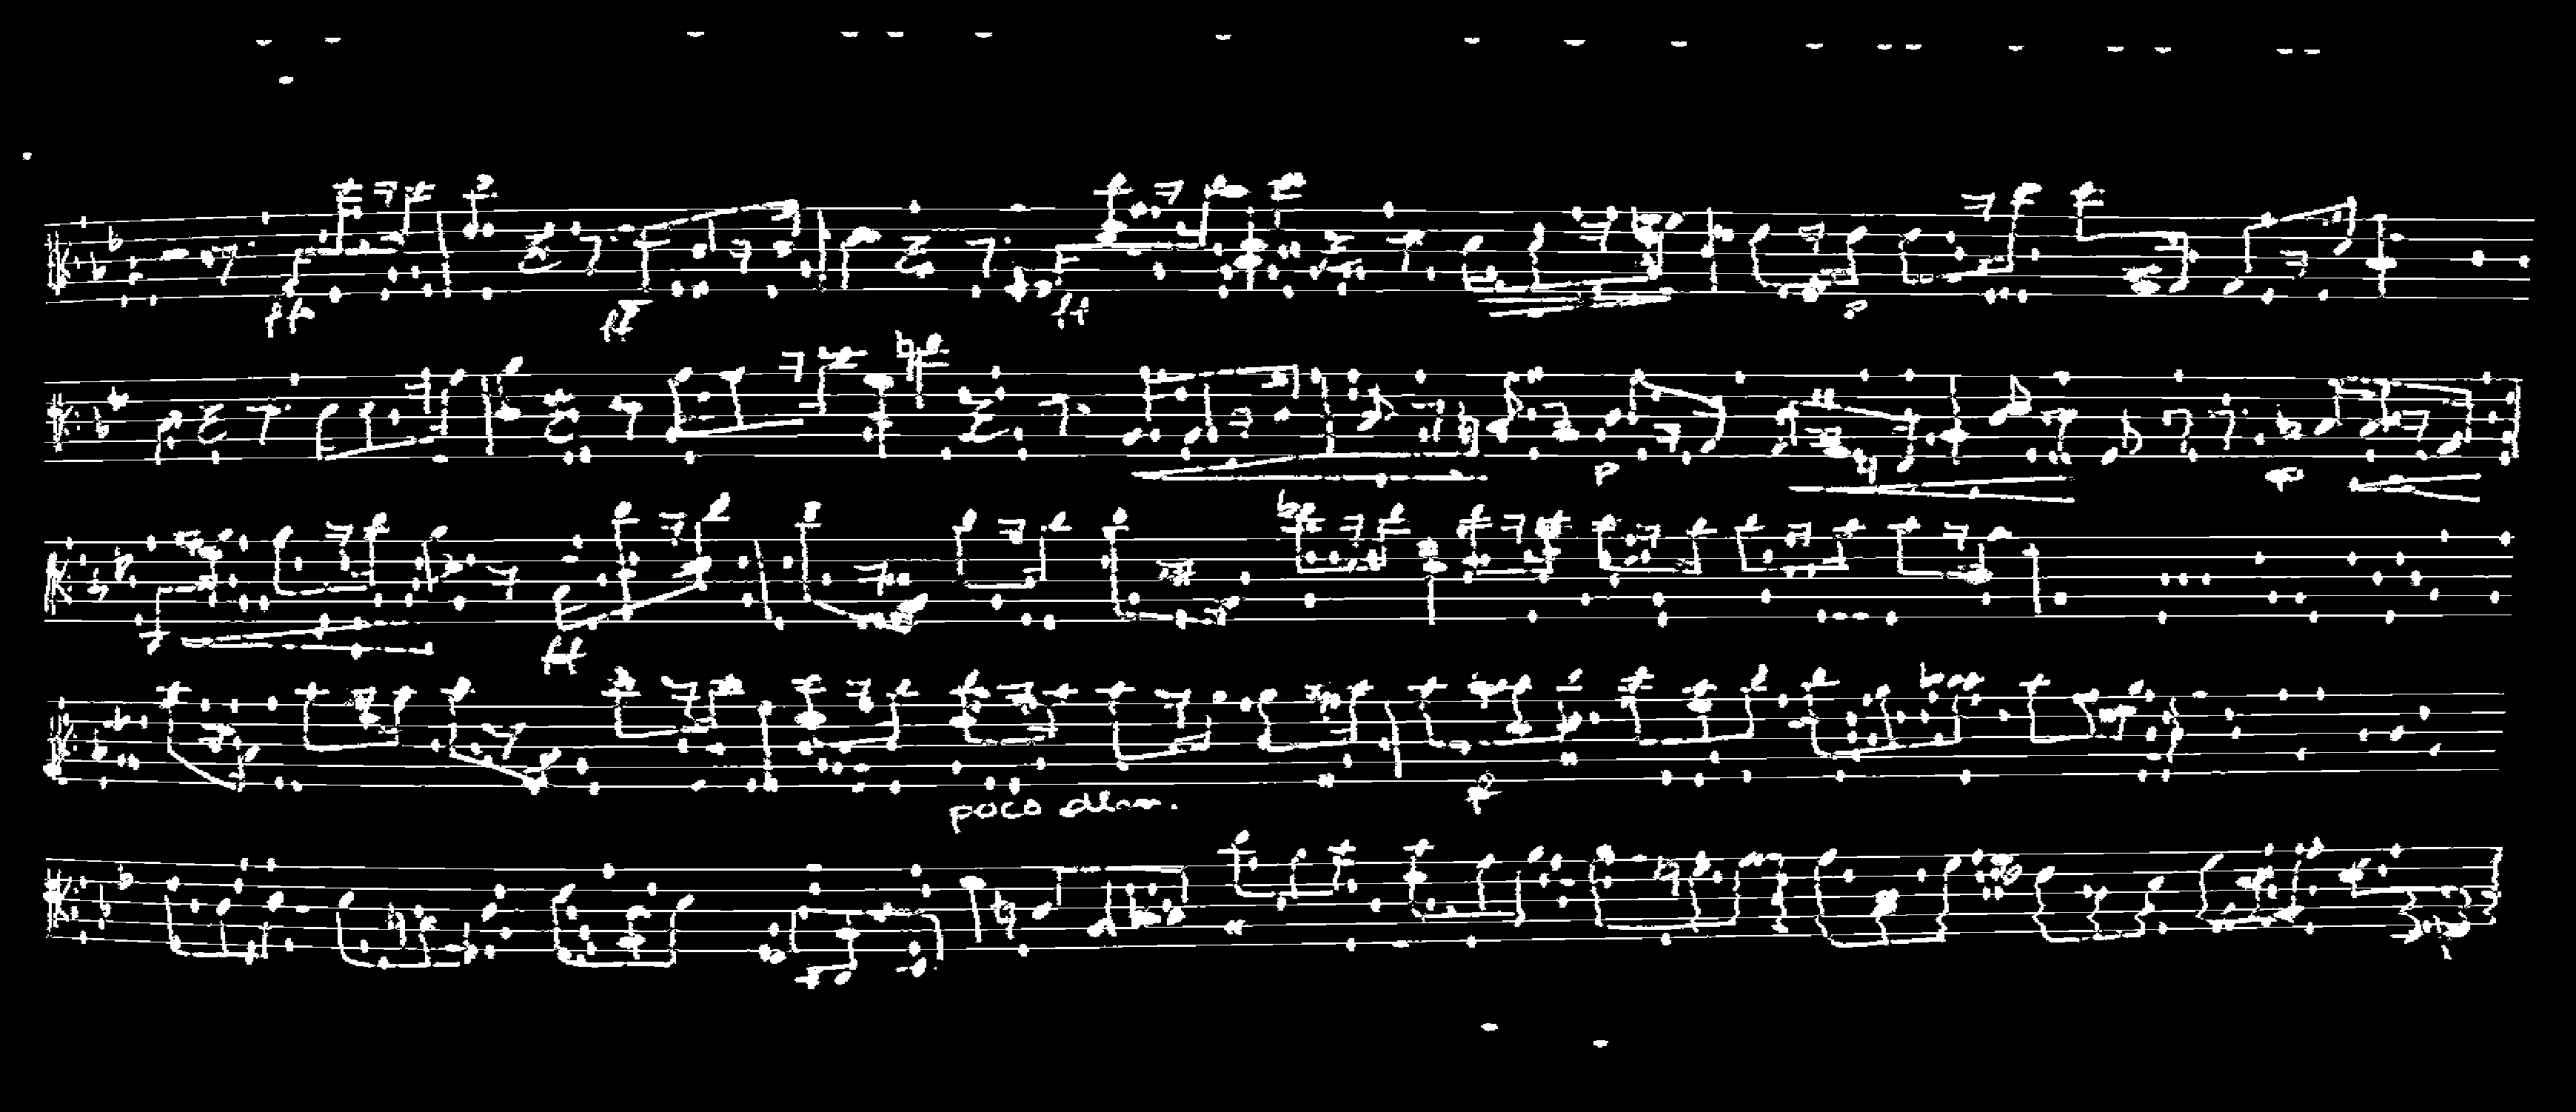 ff ff ff p
p p
ff
poco dim. p